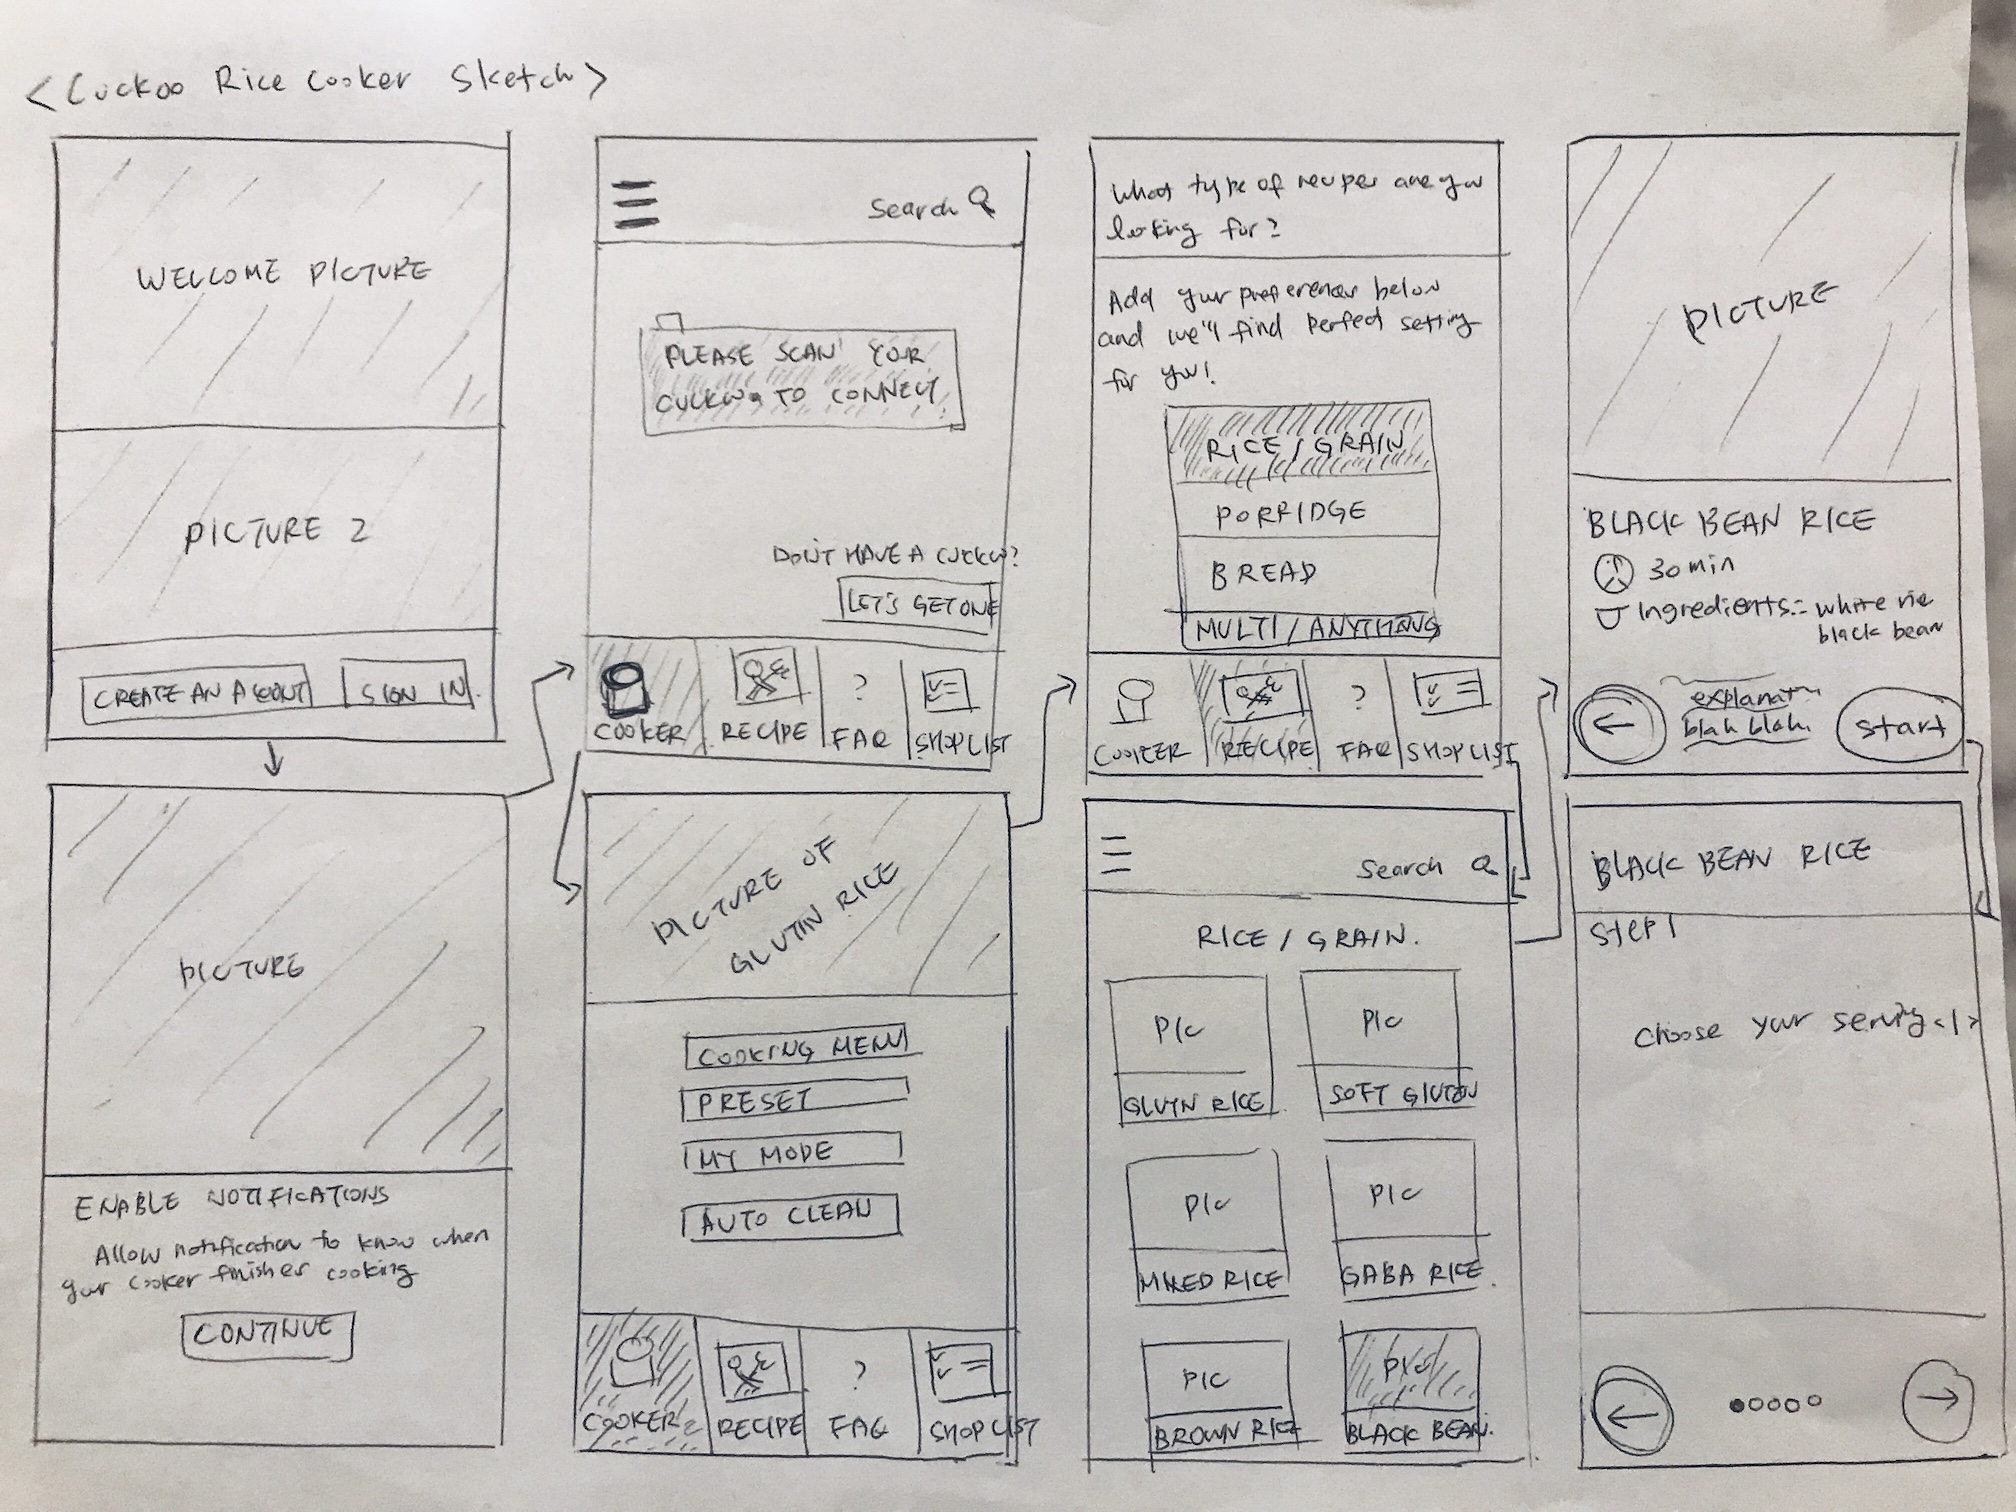 <Cuckoo Rice Cooker Sketch>
WELCOME PICTURE
PICTURE 2
CREATE AN ACCOUNT
SIGN IN.
PICTURE
ENABLE NOTIFICATIONS
Allow notification to know when
your cooker finishes cooking
CONTINUE
Search
PLEASE SCAN YOUR
CUCKOO TO CONNECT
DON'T HAVE A CUCKOO?
LET'S GET ONE
COOKER
RECIPE
?
FAQ
SHOP LIST
PICTURE OF
GLUTIN RICE
COOKING MENU
PRESET
MY MODE
AUTO CLEAN
COOKER
RECIPE
?
FAQ
SHOP LIST
What type of are you
looking for?
Add your preferences below
and we'll find perfect setting
for you!
RICE / GRAIN
PORRIDGE
BREAD
MULTI / ANYTHING
COOKER
RECIPE
?
FAQ
SHOP LIST
Search
RICE / GRAIN.
PIC
GLUTN RICE
PIC
SOFT GLUTON
PIC
MIXED RICE
PIC
GABA RICE.
PIC
BROWN RICE
PIC
BLACK BEAN.
PICTURE
BLACK BEAN RICE
30 min
Ingredients: white rice
black bean
←
explanat
blah blah.
Start
BLACK BEAN RICE
STEP 1
Choose your serving <1>
←
→